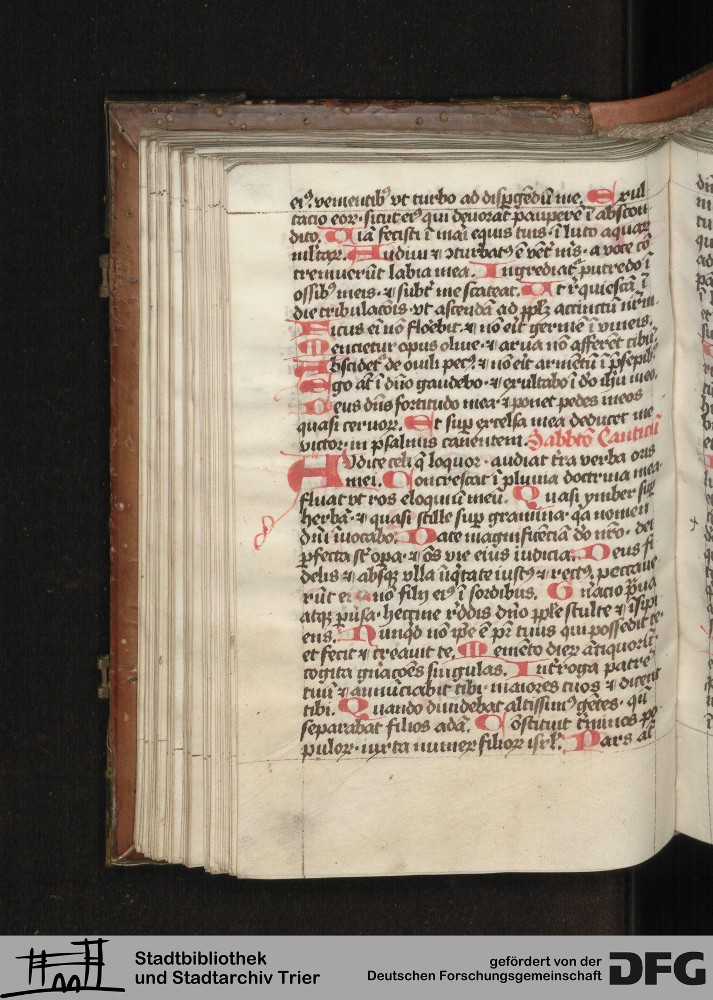 ei⁹ venientib⁹ vt turbo ad disp̄gēdū me. Exul
tacio eoꝝ · sicut ei⁹ qui deuorat pauperē ī abscon
dito. Uiā fecisti ī mari equis tuis · ī luto aquaꝝ
mltaꝝ. Audiui ⁊ ↄturbat⁹ ē vēt͛ me⁹ · a voce cō
tremuerūt labia mea. Ingrediat͛ putredo ī
ossib⁹ meis · ⁊ subt͛ me scateat. Ut r̄quiescā ī
die tribulacōis · vt ascendā ad pplm̄ accinctū nr̄m.
Ficus eī nō florebit · ⁊ nō erit germē ī vineis.
Mencietur opus oliue · ⁊ arua nō afferēt cibū.
Abscidet͛ de ouili pec⁹ · ⁊ nō erit armētū ī p̄sepib⁹.
Ego aūt ī dn̄o gaudebo · ⁊ exultabo ī do ihū meo.
Deus dn̄s fortitudo mea · ⁊ ponet pedes meos
quasi ceruoꝝ. Et sup excelsa mea deducet me
victor · in psalmis canentem. Sabbto Canticū
Audite celi q̄ loquor · audiat tr̄a verba oris
mei. Concrescat ī pluuia doctrina mea ·
fluat vt ros eloquiū meū. Quasi ymber sup
herbā · ⁊ quasi stille sup gramina · q̄a nomen
dn̄i īuocabo. Date magnificēciā do nr̄o · dei
p̄fecta sūt opa · ⁊ oēs vie eius iudicia. Deus fi
delis ⁊ absqꝫ vlla īiq̄tate iust⁹ ⁊ rect⁹, peccaue
rūt ei ⁊ nō filij ei⁹ ī sordibus. Gn̄acio praua
atqꝫ p̄usa · heccine r̄ddis dn̄o pple stulte ⁊ īsipi
ens. Nunqd nō ip̄e ē pr̄ tuus qui possedit te ·
et fecit ⁊ creauit te. Memēto dieꝝ ātiquoꝝ ·
cogita gn̄acōes singulas. Int̄roga patrē
tuū ⁊ annūciabit tibi · maiores tuos ⁊ dicent
tibi. Quando diuidebat altissim⁹ gētes · qn̄
separabat filios adā. Cōstituit t̄minos po
puloꝝ · iuxta numeꝝ filioꝝ isrl̄. Pars aūt
Stadtbibliothek
und Stadtarchiv Trier
gefördert von der
Deutschen Forschungsgemeinschaft
DFG